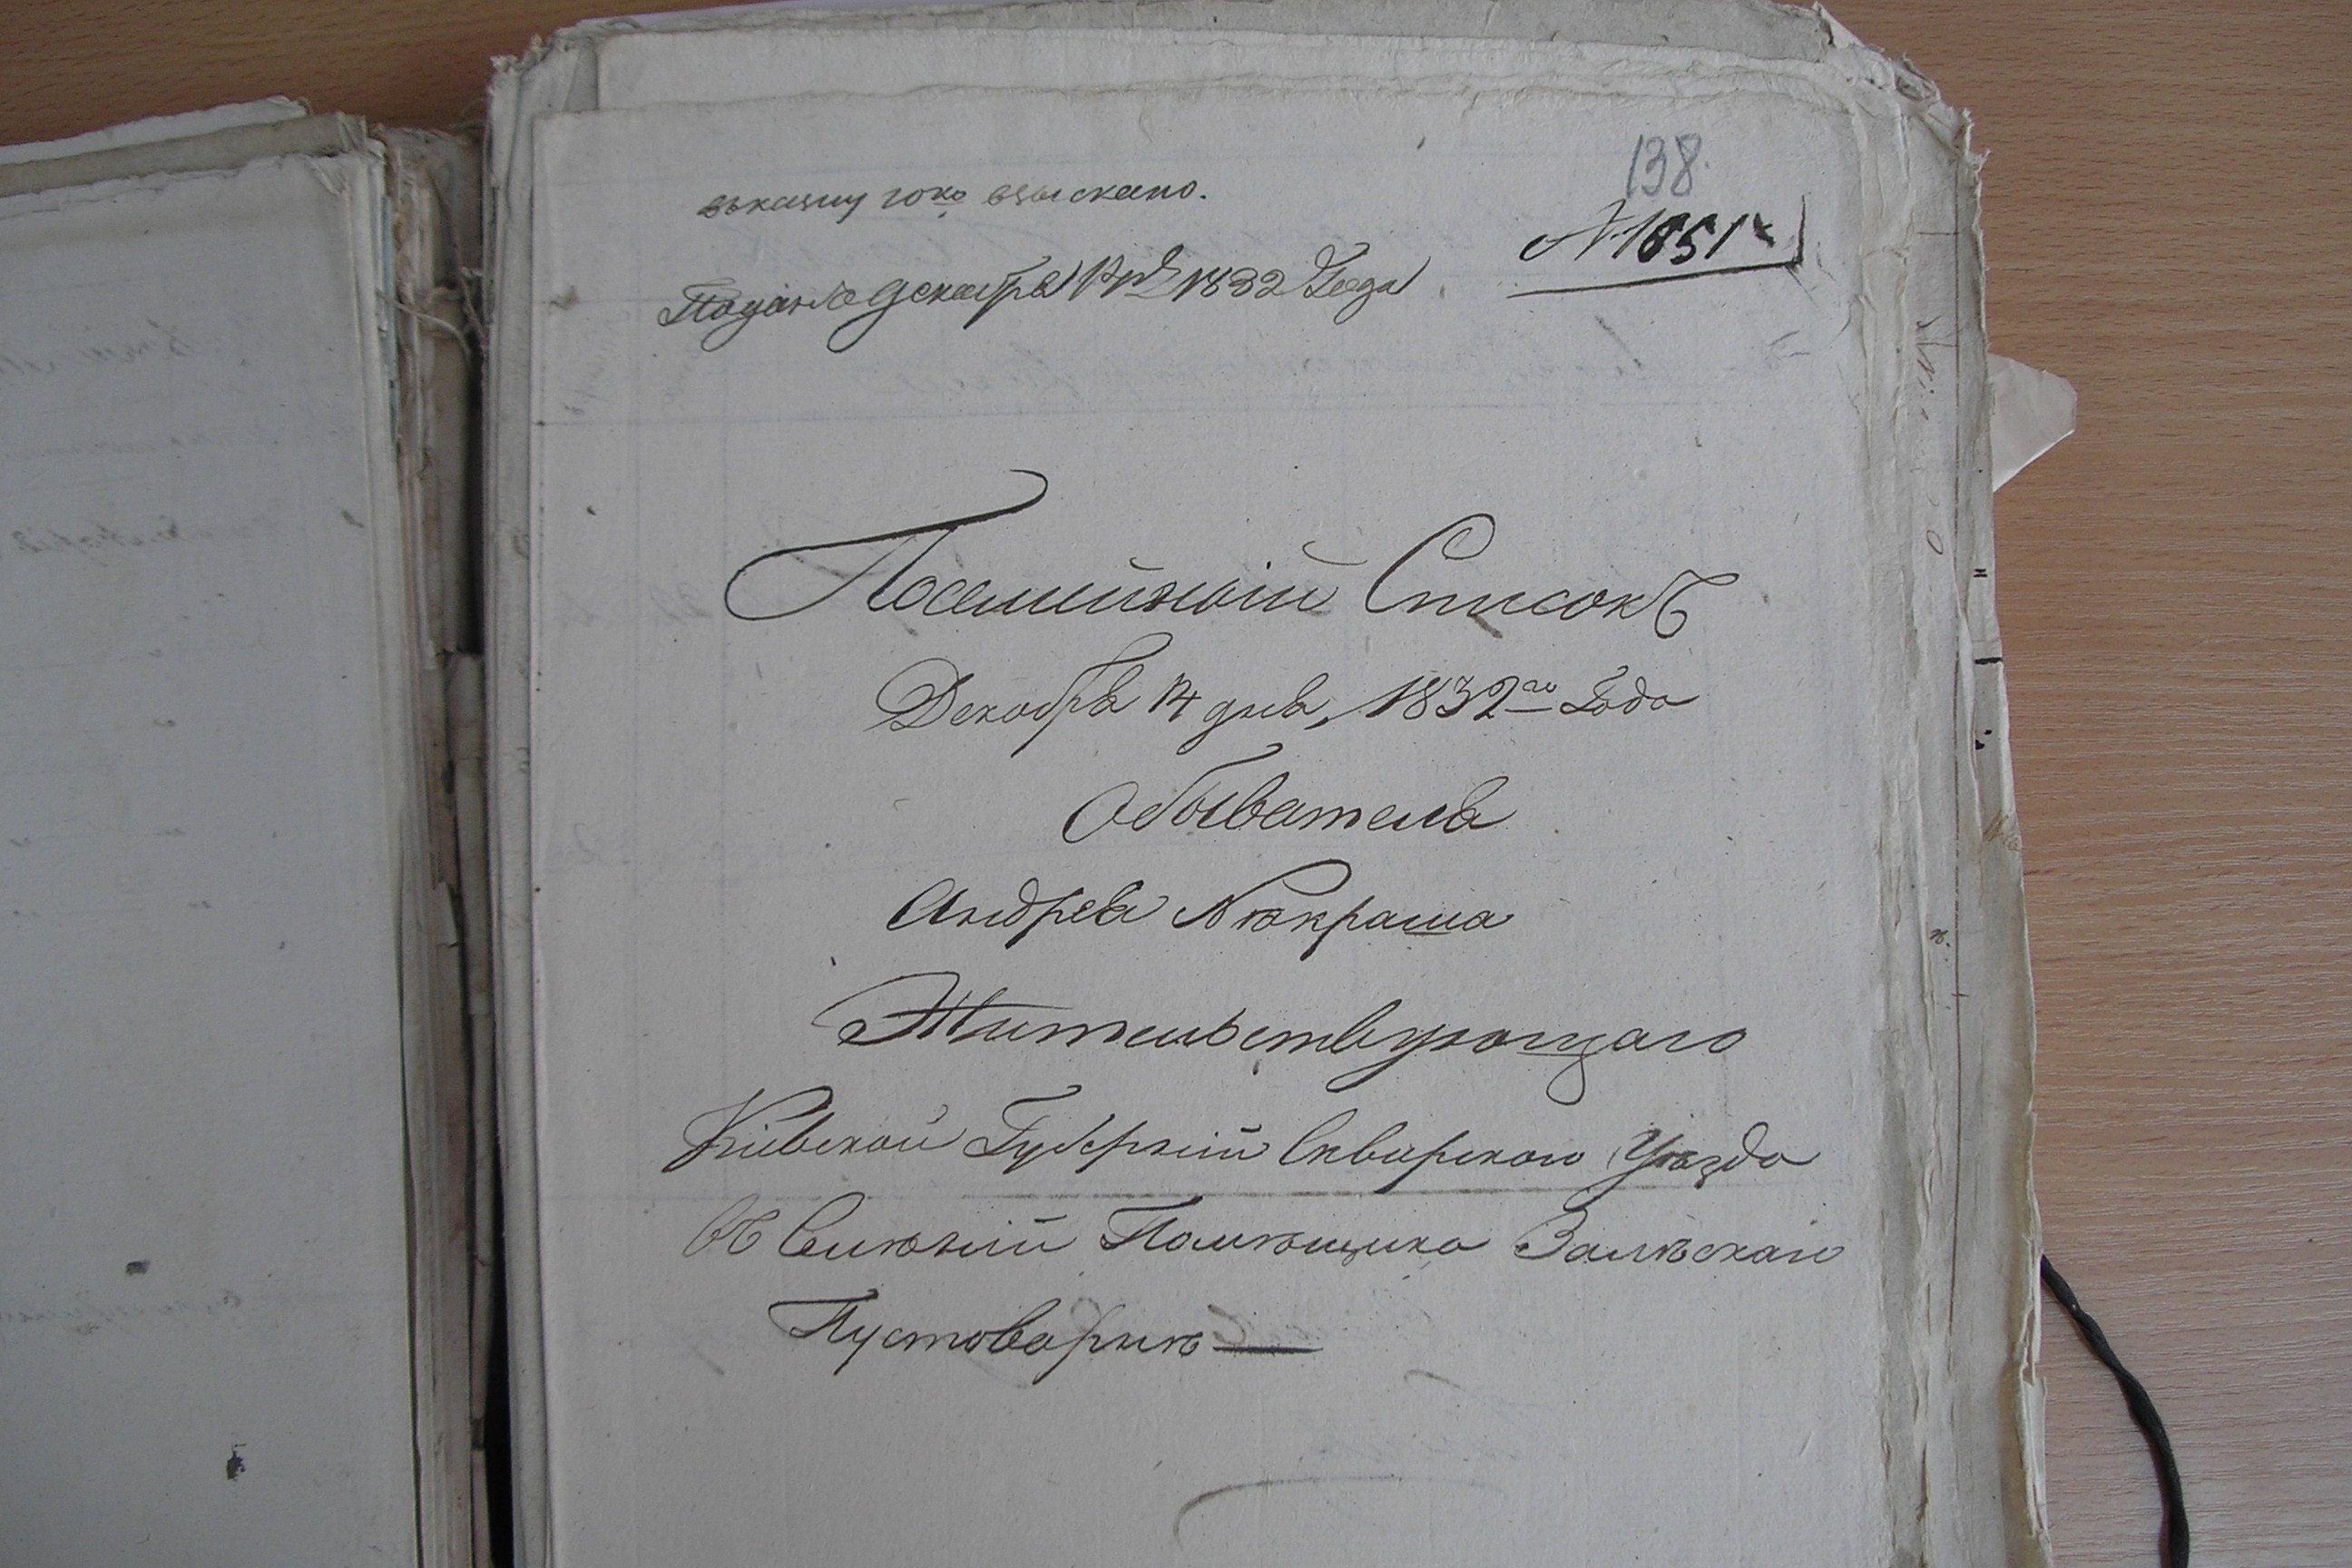 138.
въ казну 10ко взыскано.
№ 1851
Подано декабря 19 1832 Года
Посемийный Списокъ
Декабря 14 дня, 1832го Года
Обывателя
Андрея Нѣкраша
Жительствующаго
Кіевской Губерніи Сквирского Уѣзда
Въ Селѣніи Помѣщика Залѣскаго
Пустоваркѣ